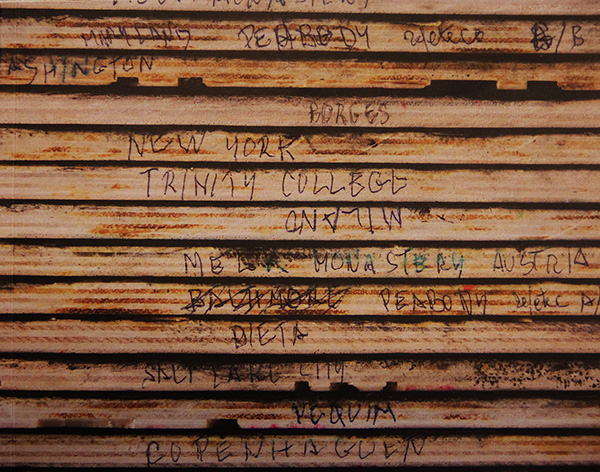 PEABODY
ASHINGTON
BORGES
NEW YORK
TRINITY COLLEGE
MILAND
MELK MONASTERY AUSTRIA
BALTIMORE PEABODY
DIETA
SALT LAKE CITY
VEQUIM
COPENHAGUEN